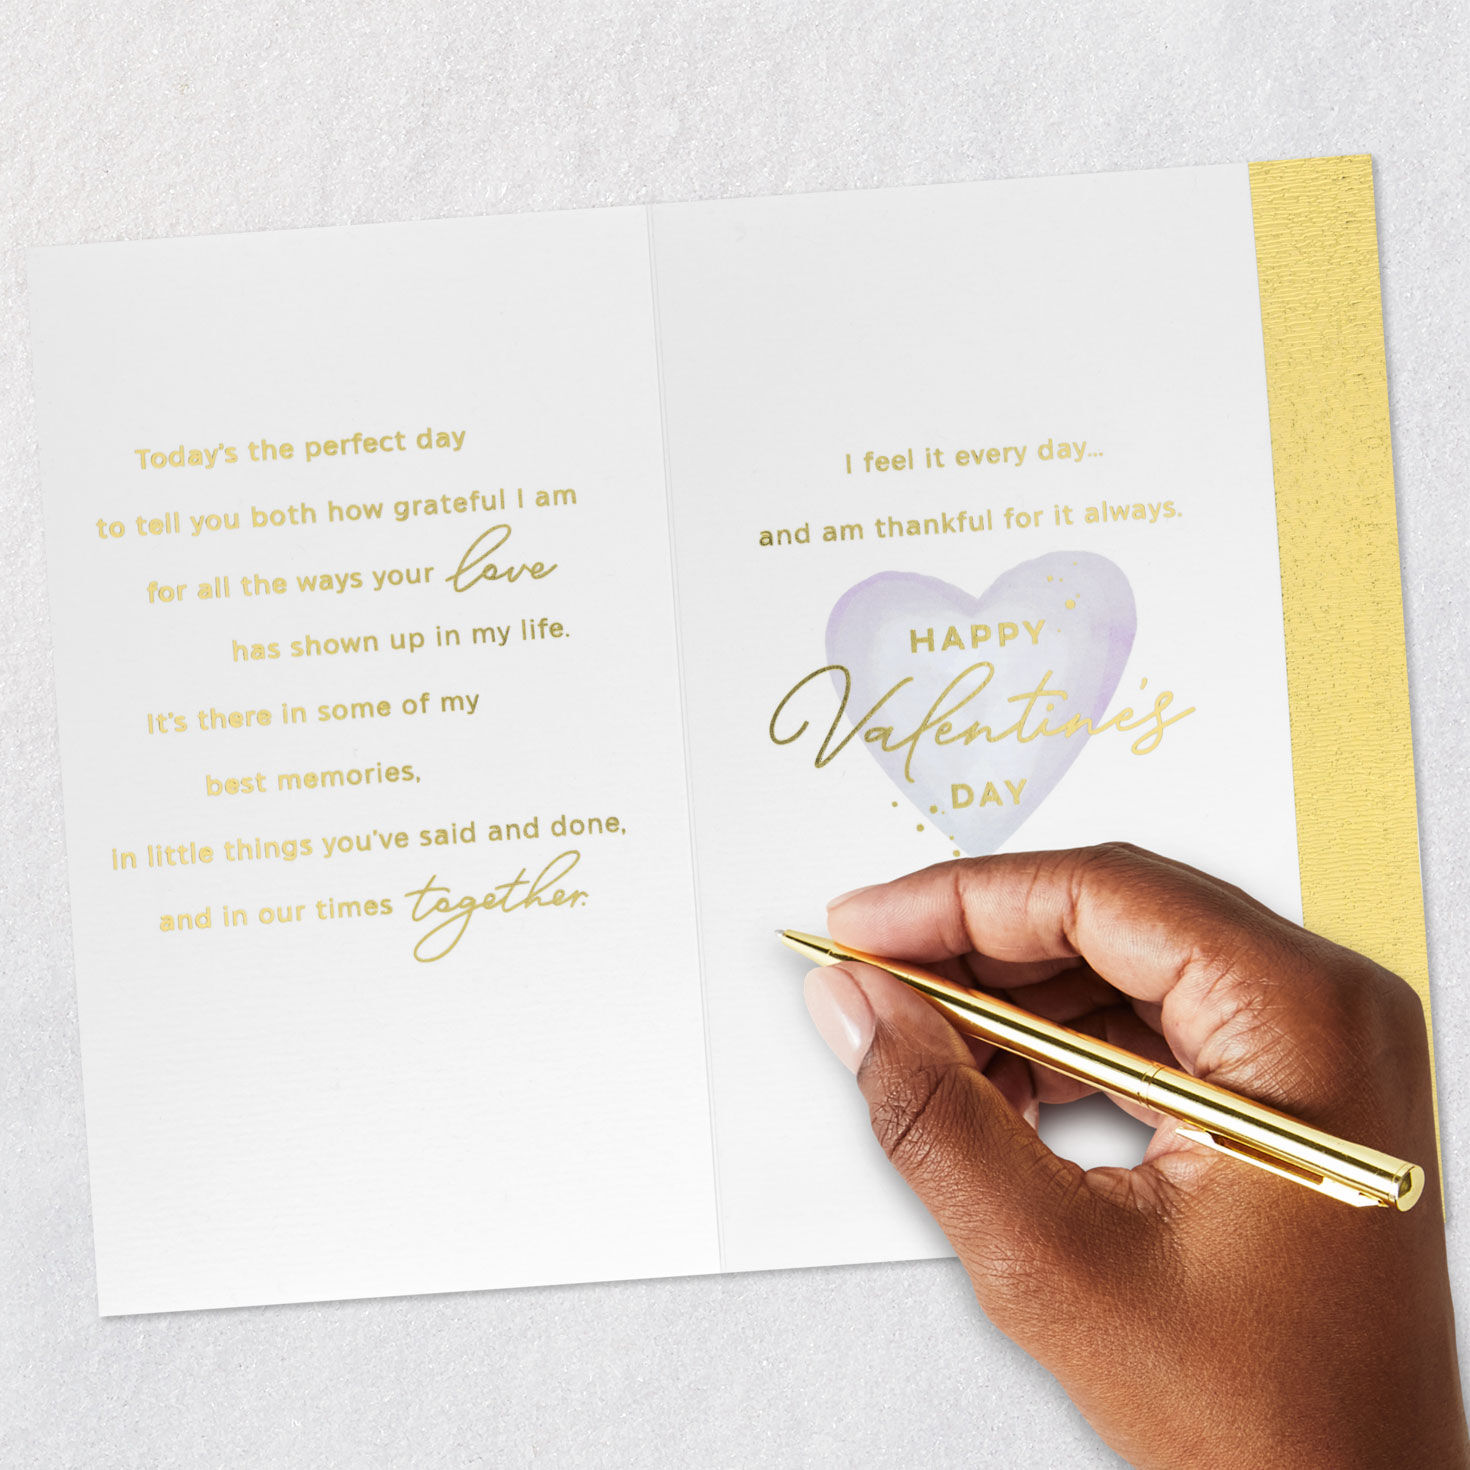 Today's the perfect day
to tell you both how grateful I am
for all the ways your love
has shown up in my life.
It's there in some of my
best memories,
in little things you've said and done,
and in our times together.
I feel it every day...
and am thankful for it always.
HAPPY
Valentine's
DAY